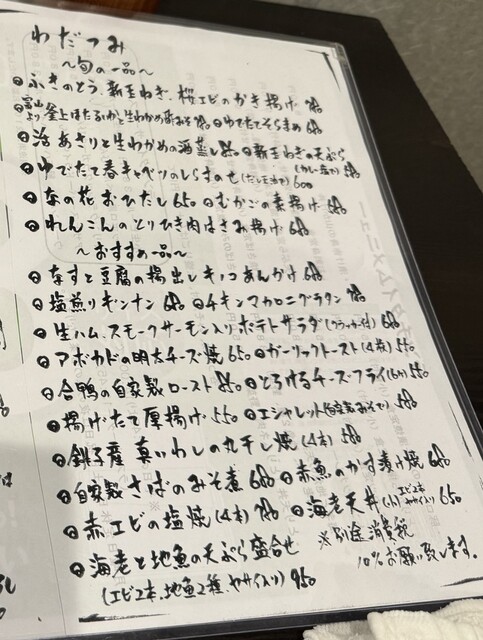 わだつみ
～旬の一品～
ふきのとう、新玉ねぎ、桜エビのかき揚げ 780
富山より 釜上ほたるいかと生わかめ酢みそ 780 ゆでたてそらまめ 680
活あさりと生わかめの酒蒸し 850 新玉ねぎの天ぷら(カレー塩で) 580
ゆでたて春キャベツのしらすのせ 600
菜の花おひたし 650 むかごの素揚げ 580
れんこんのとりひき肉はさみ揚げ 680
～おすすめ一品～
なすと豆腐の揚出しキノコあんかけ 680
塩煎りギンナン 680 チキンマカロニグラタン 780
生ハム、スモークサーモン入りポテトサラダ(クラッカー付) 680
アボカドの明太チーズ焼 650 ガーリックトースト(4枚) 550
合鴨の自家製ロースト 850 とろけるチーズフライ(6ヶ) 550
揚げたて厚揚げ 550 エシャレット(自家製みそで) 580
銚子産 真いわしの丸干し焼(4本) 580
自家製さばのみそ煮 680 赤魚のかす漬け焼 680
赤エビの塩焼(4本) 780 海老天丼(小)エビ2本 ヤサイ入り 650
海老と地魚の天ぷら盛合せ
(エビ2本、地魚2種、ヤサイ入り) 950
※別途消費税
10%お願い致します。